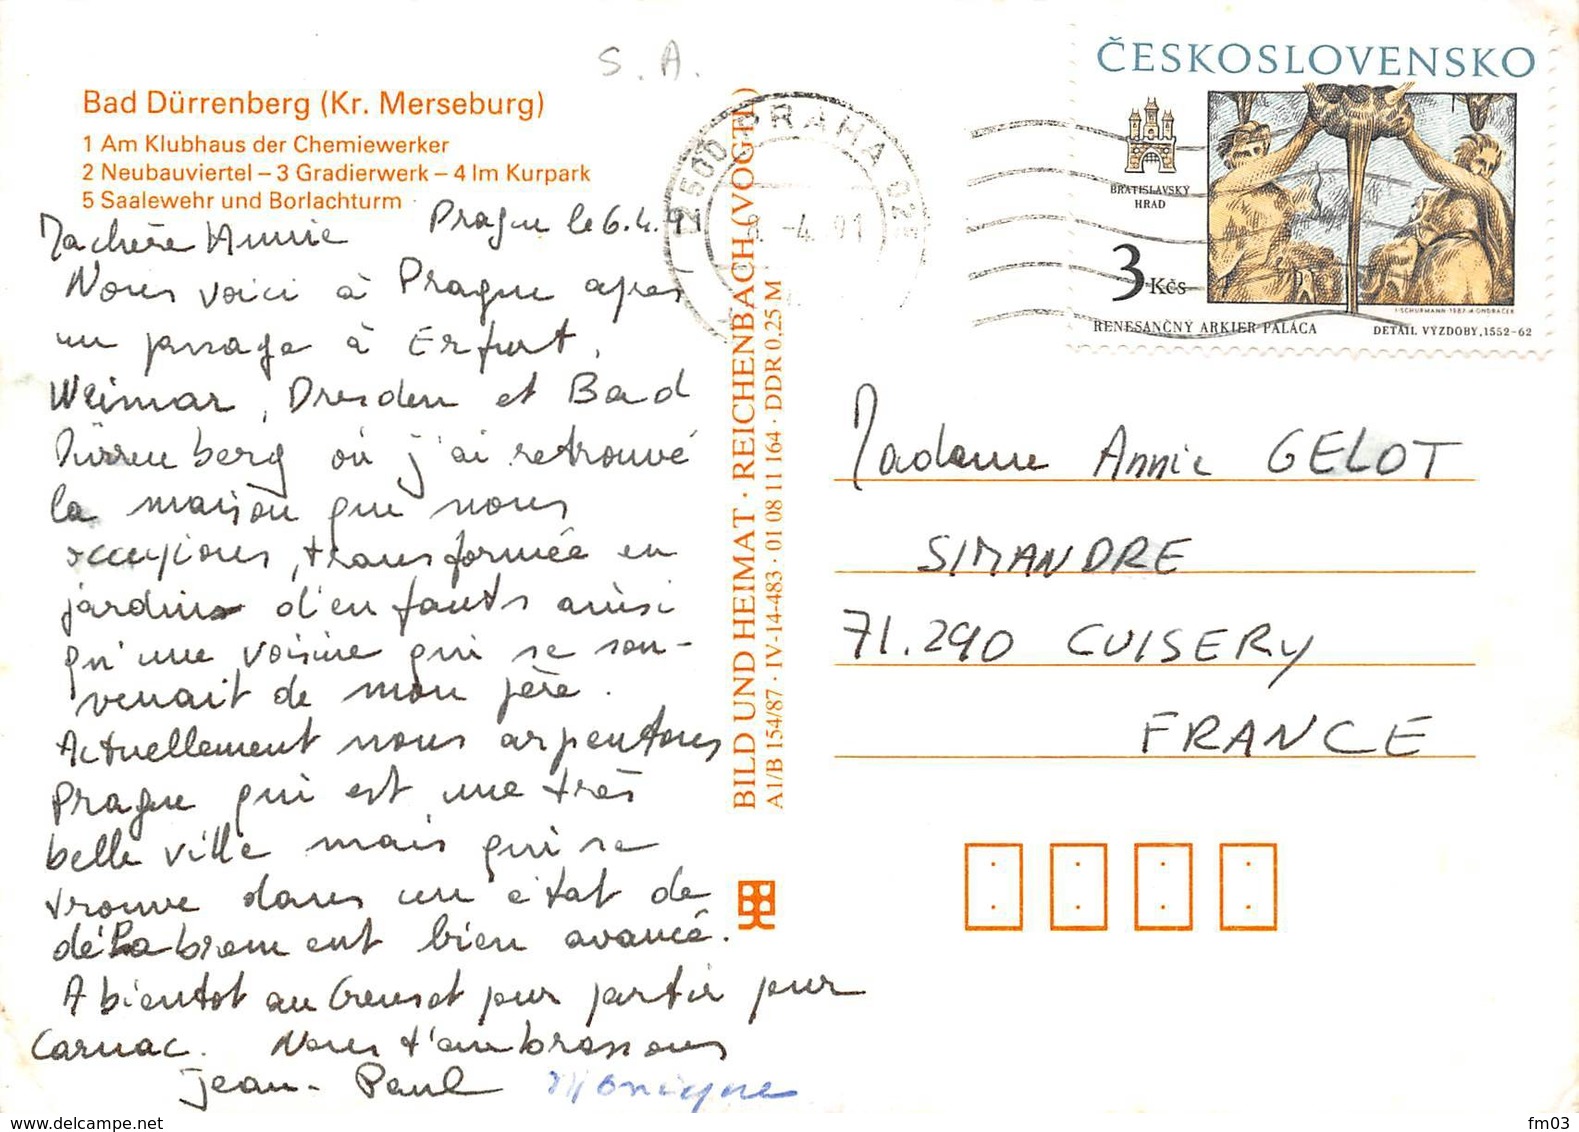 S. A.
Bad Dürrenberg (Kr. Merseburg)
1 Am Klubhaus der Chemiewerker
2 Neubauviertel – 3 Gradierwerk – 4 Im Kurpark
5 Saalewehr und Borlachturm
Prague le 6.4.91
Ma chère Annie
Nous voici à Prague apres
un passage à Erfurt,
Weimar, Dresden et Bad
Dürrenberg où j'ai retrouvé
la maison que nous
occupions, transformée en
jardin d'enfants ainsi
qu'une voisine qui se sou-
venait de mon père.
Actuellement nous arpentons
Prague qui est une très
belle ville mais qui se
trouve dans un état de
délabrement bien avancé.
A bientot au Creusot pour partir pour
Carnac. Nous t'embrassons
Jean-Paul Monique
BILD UND HEIMAT · REICHENBACH (VOGTL)
A1/B 154/87 · IV-14-483 · 01 08 11 164 · DDR 0,25 M
PRAHA 02
-4. 91
ČESKOSLOVENSKO
BRATISLAVSKÝ
HRAD
3 Kčs
I·SCHURMANN 1987·M·ONDRÁČEK
RENESANČNÝ ARKIER PALÁCA
DETAIL VÝZDOBY, 1552-62
Madame Annie GELOT
SIMANDRE
71.290 CUISERY
FRANCE
www.delcampe.net
fm03